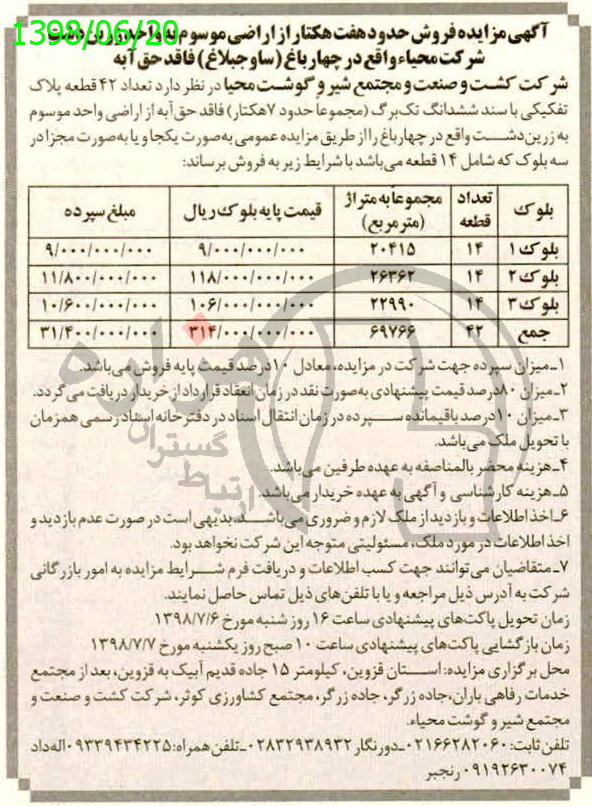 1398/06/20
آگهی مزایده فروش حدود هفت هکتار از اراضی موسوم به واحد زرین دشت
شرکت محیاء واقع در چهارباغ (ساوجبلاغ) فاقد حق آبه
شرکت کشت و صنعت و مجتمع شیر و گوشت محیا در نظر دارد تعداد ۴۲ قطعه پلاک
تفکیکی با سند ششدانگ تک‌برگ (مجموعاً حدود ۷هکتار) فاقد حق آبه از اراضی واحد موسوم
به زرین‌دشت واقع در چهارباغ را از طریق مزایده عمومی به‌صورت یکجا و یا به‌صورت مجزا در
سه بلوک که شامل ۱۴ قطعه می‌باشد با شرایط زیر به فروش برساند:
بلوک تعداد قطعه مجموعاً به متراژ (مترمربع) قیمت پایه بلوک ریال مبلغ سپرده
بلوک ۱ ۱۴ ۲۰۴۱۵ ۹/۰۰۰/۰۰۰/۰۰۰ ۹/۰۰۰/۰۰۰/۰۰۰
بلوک ۲ ۱۴ ۲۶۳۶۲ ۱۱۸/۰۰۰/۰۰۰/۰۰۰ ۱۱/۸۰۰/۰۰۰/۰۰۰
بلوک ۳ ۱۴ ۲۲۹۹۰ ۱۰۶/۰۰۰/۰۰۰/۰۰۰ ۱۰/۶۰۰/۰۰۰/۰۰۰
جمع ۴۲ ۶۹۷۶۶ ۳۱۴/۰۰۰/۰۰۰/۰۰۰ ۳۱/۴۰۰/۰۰۰/۰۰۰
۱ـ میزان سپرده جهت شرکت در مزایده، معادل ۱۰درصد قیمت پایه فروش می‌باشد.
۲ـ میزان ۸۰درصد قیمت پیشنهادی به‌صورت نقد در زمان انعقاد قرارداد از خریدار دریافت می‌گردد.
۳ـ میزان ۱۰درصد باقیمانده سپرده در زمان انتقال اسناد در دفترخانه اسناد رسمی همزمان
با تحویل ملک می‌باشد.
۴ـ هزینه محضر بالمناصفه به عهده طرفین می‌باشد.
۵ـ هزینه کارشناسی و آگهی به عهده خریدار می‌باشد.
۶ـ اخذ اطلاعات و بازدید از ملک لازم و ضروری می‌باشد. بدیهی است در صورت عدم بازدید و
اخذ اطلاعات در مورد ملک، مسئولیتی متوجه این شرکت نخواهد بود.
۷ـ متقاضیان می‌توانند جهت کسب اطلاعات و دریافت فرم شرایط مزایده به امور بازرگانی
شرکت به آدرس ذیل مراجعه و یا با تلفن‌های ذیل تماس حاصل نمایند.
زمان تحویل پاکت‌های پیشنهادی ساعت ۱۶ روز شنبه مورخ ۱۳۹۸/۷/۶
زمان بازگشایی پاکت‌های پیشنهادی ساعت ۱۰ صبح روز یکشنبه مورخ ۱۳۹۸/۷/۷
محل برگزاری مزایده: استان قزوین، کیلومتر ۱۵ جاده قدیم آبیک به قزوین، بعد از مجتمع
خدمات رفاهی باران، جاده زرگر، جاده زرگر، مجتمع کشاورزی کوثر، شرکت کشت و صنعت و
مجتمع شیر و گوشت محیاء.
تلفن ثابت: ۰۲۱۶۶۲۸۲۰۶۰ـ دورنگار ۰۲۸۳۲۹۳۸۹۳۲ـ تلفن همراه: ۰۹۳۳۹۴۳۴۲۲۵ اله‌داد
۰۹۱۹۲۶۳۰۰۷۴ رنجبر
هزاره
گستران
ارتباط